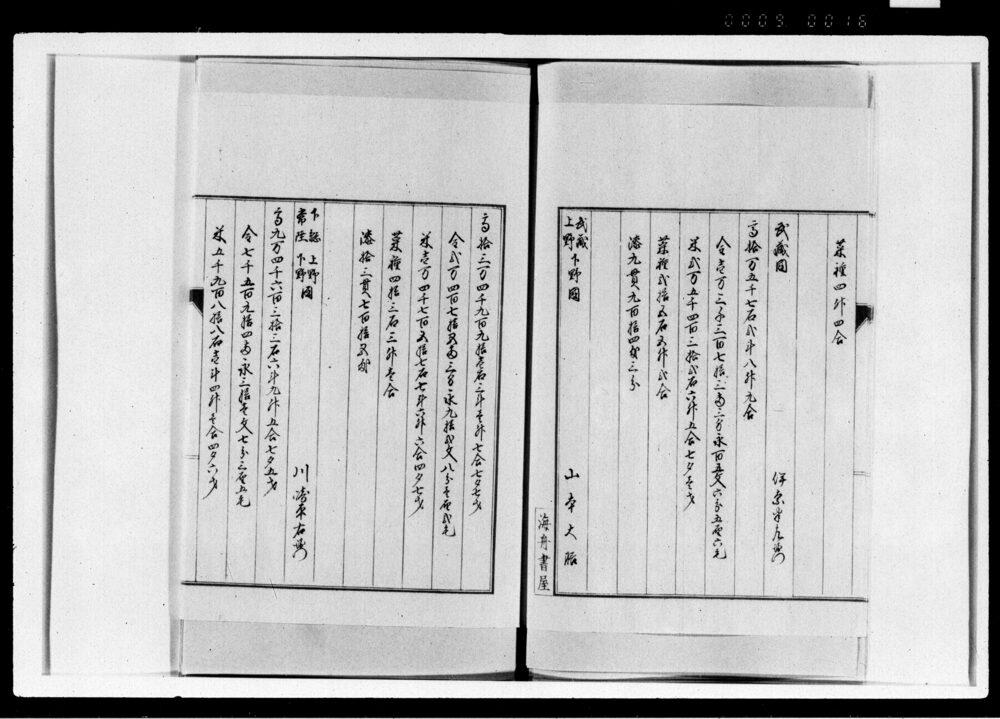 0009 0016
菜種四升四合
武藏國
伊奈半左衛門
高拾万五千七石弐斗八升九合
金壱万三千三百七拾三両三分永百五文六分五厘六毛
米弐万五千四百三拾弐石六升五合七夕壱才
菜種弐拾五石五升弐合
漆九貫九百拾四匁三分
武藏下野國
上野
山本大膳
海舟書屋
高拾三万四千九百九拾壱石三斗壱升七合七夕七才
金弐万四百七拾五両三分永九拾弐文八分壱厘弐毛
米壱万四千七百五拾七石七斗六升六合四夕七才
菜種四拾三石三升壱合
漆拾三貫七百拾五匁
下総上野
常陸下野國
川崎平右衛門
高九万四千六百三拾三石六斗九升五合七夕五才
金七千五百九拾四両永三拾壱文七分三厘五毛
米五千九百八拾八石壱斗四升壱合四夕六才